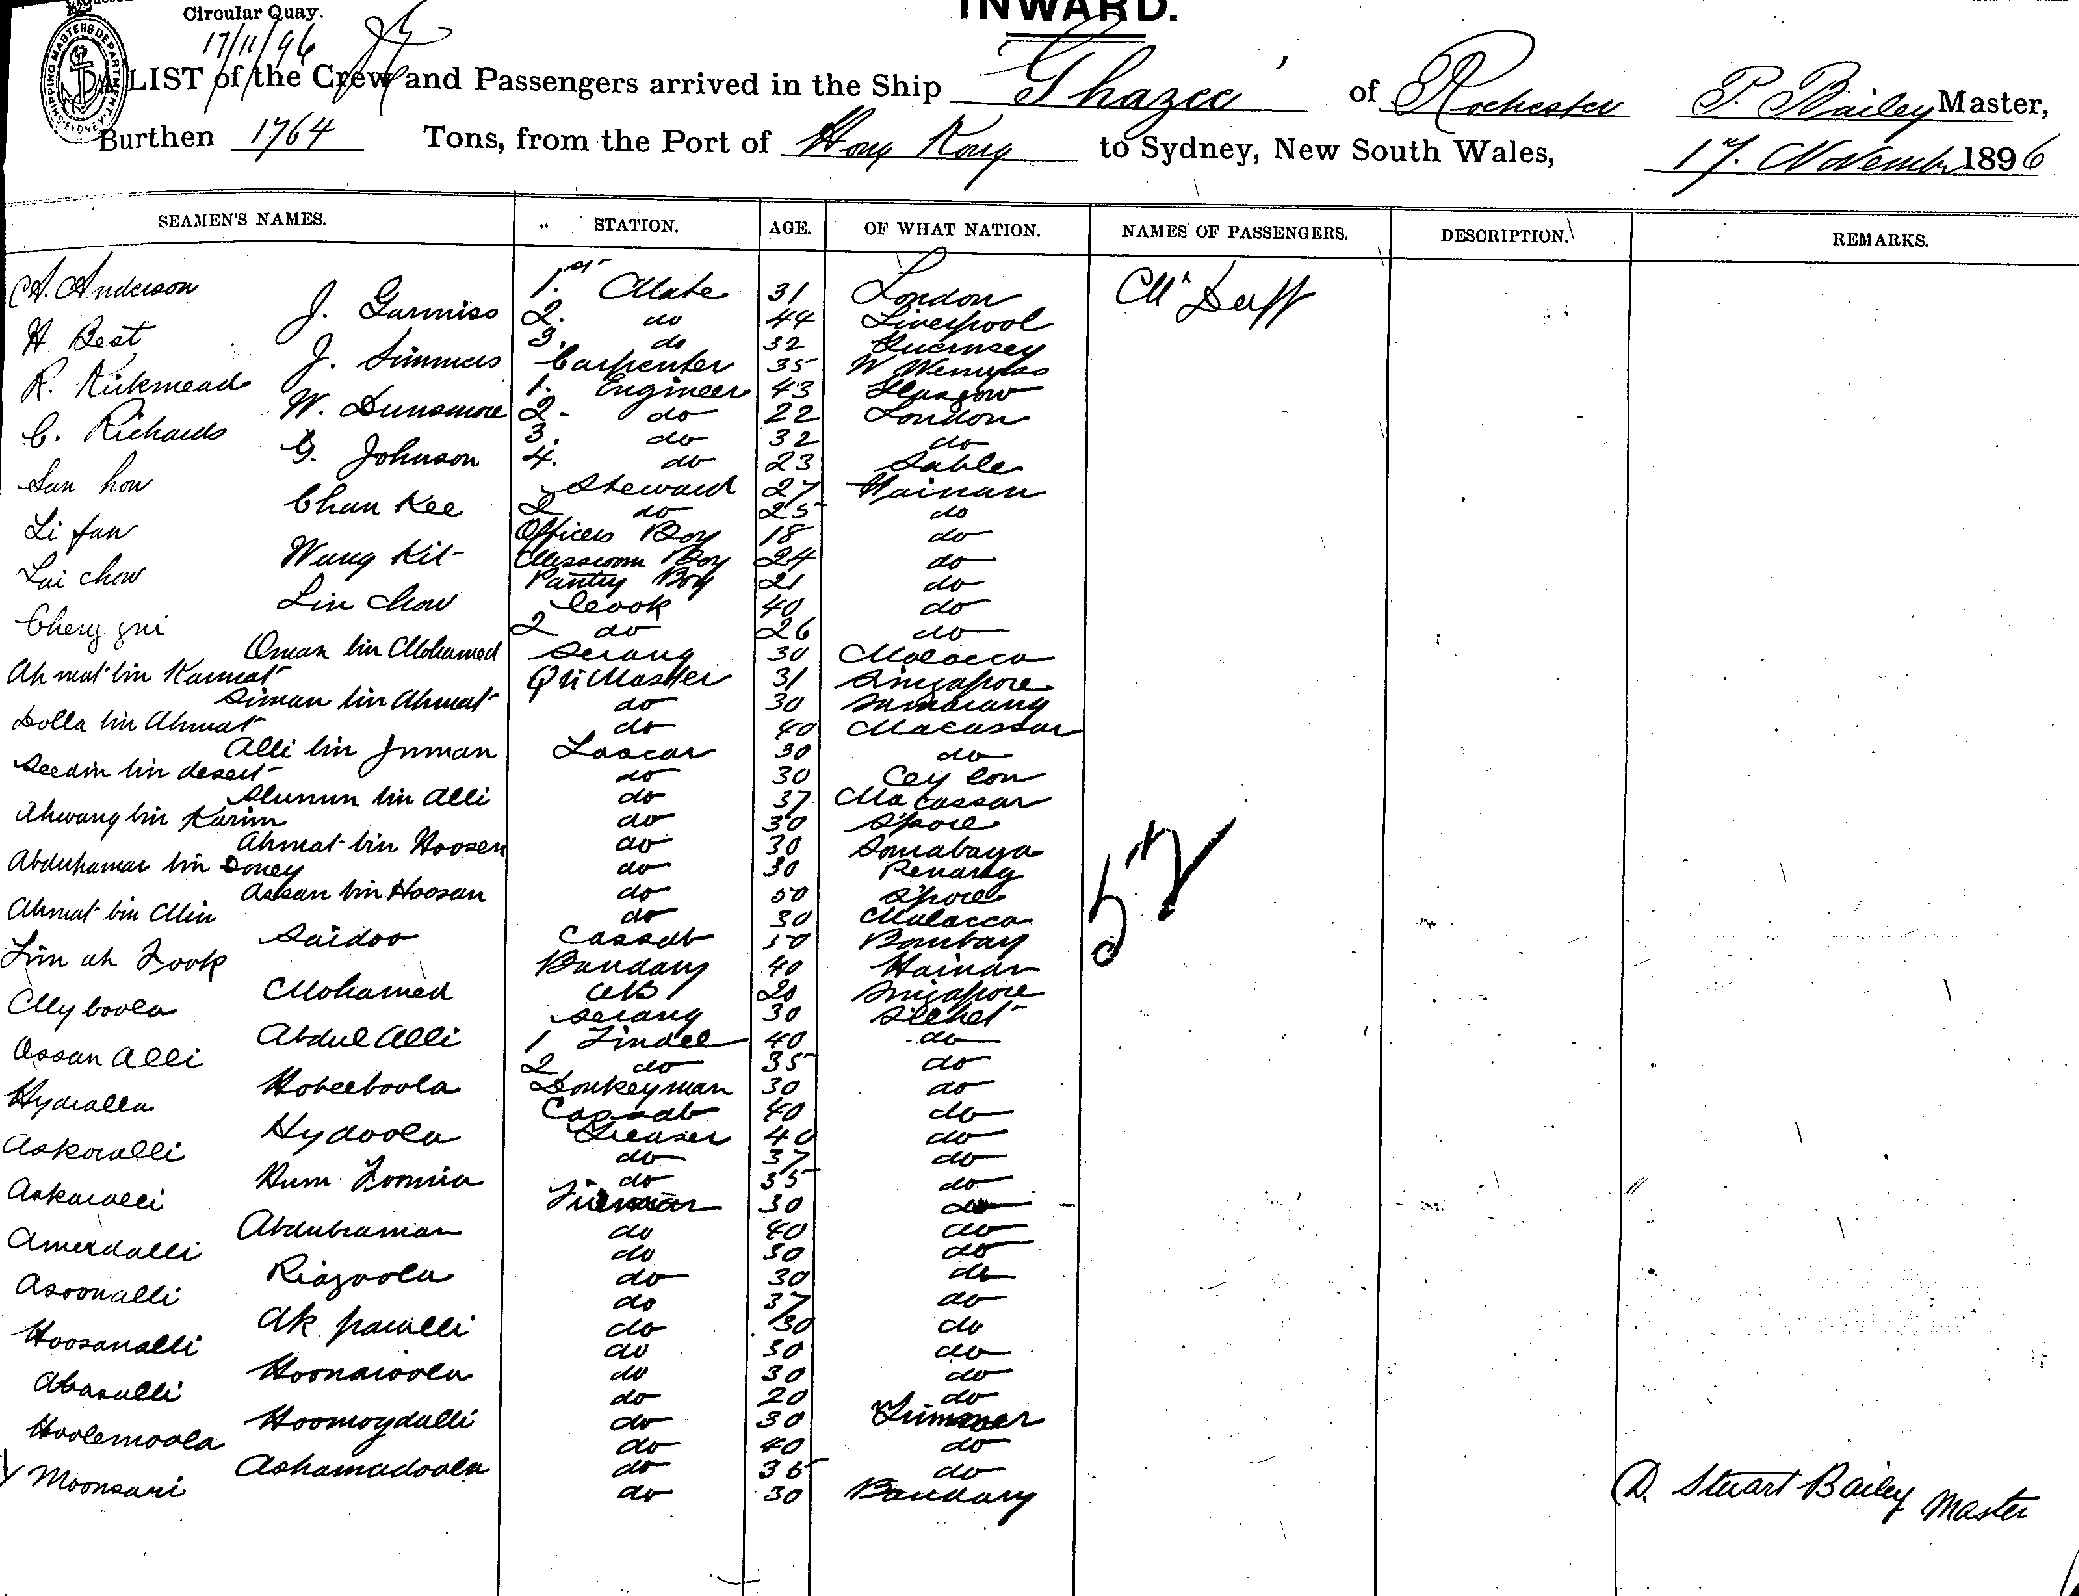 Circular Quay.
INWARD.
17/11/96
A LIST of the Crew and Passengers arrived in the Ship Ghazee of Rochester P. Bailey Master,
Burthen 1764 Tons, from the Port of Hong Kong to Sydney, New South Wales, 17. November 1896
SEAMEN'S NAMES. STATION. AGE. OF WHAT NATION. NAMES OF PASSENGERS. DESCRIPTION. REMARKS.
A. Anderson 1st Mate 31 London Mr Duff
J. Garmiss 2. do 44 Liverpool
H Best 3. do 32 Guernsey
J. Simmers Carpenter 35 W Wemyss
R. Kirkmead 1. Engineer 43 Glasgow
W. Dunsmore 2. do 22 London
C. Richards 3. do 32 do
G. Johnson 4. do 23 Sable
San hou Steward 27 Hainan
Chan Kee 2 do 25 do
Li fan Officers Boy 18 do
Wung Kit Messroom Boy 24 do
Lai chow Pantry Boy 21 do
Lin Chow Cook 40 do
Cheng gui 2 do 26 do
Oman bin Mohamed Serang 30 Malacca
Ahmat bin Karmat Qr Master 31 Singapore
Siman bin Ahmat do 30 Samarang
Dolla bin Ahmat do 40 Macassar
Alli bin Juman Lascar 30 do
Seedin bin deseit do 30 Ceylon
Slumun bin Alli do 37 Macassar
Ahwang bin Karim do 30 S'pore
Ahmat bin Hoosen do 30 Sourabaya
Abduhaman bin Doney do 30 Penang
Assan bin Hoosan do 50 S'pore
Ahmat bin Min do 30 Malacca
Saidoo Cassab 50 Bombay
Lim ah Fook Bandary 40 Hainan
Mohamed AB 20 Singapore
Olly boola Serang 30 Silchet
Abdul Alli 1 Tindel 40 do
Assan Alli 2 do 35 do
Hobeeboola Donkeyman 30 do
Hydialla Cassab 40 do
Hydoola Greaser 40 do
Askoialli do 37 do
Rum Toomia do 35 do
Askaialli Fireman 30 do
Abdubraman do 40 do
Amerdalli do 30 do
Riazoola do 30 do
Asoonalli do 37 do
Ak paialli do 30 do
Hoosanalli do 30 do
Hoonaioola do 30 do
Abasalli do 20 do
Hoomoydalli do 30 Trimmer
Hoolemoola do 40 do
Ashamadoola do 36 do
Moonsari do 30 Bandary
52
D. Stuart Bailey Master